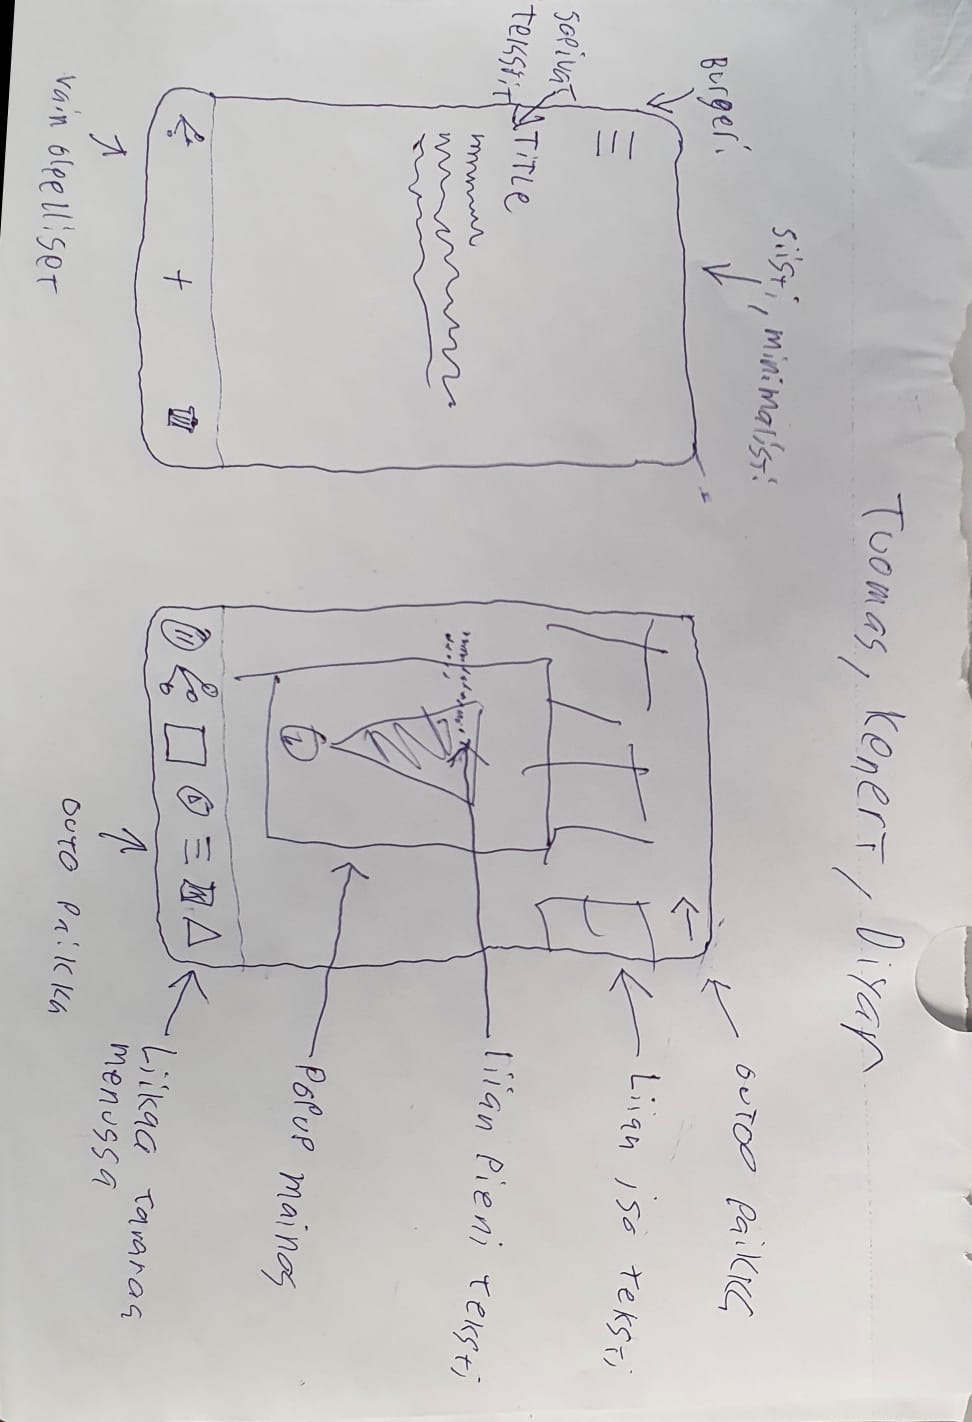 Tuomas, Kenert, Diyar
siisti, minimalisti
Burgeri
sopivat
tekstit
TiTLE
vain oleelliset
outoo paikka
Liian iso teksti
TiTLE
liian pieni teksti
Popup mainos
Liikaa tavaraa
menussa
outo paikka